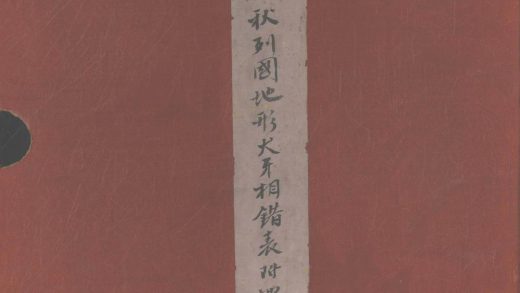 秋列國地形犬牙相錯表附